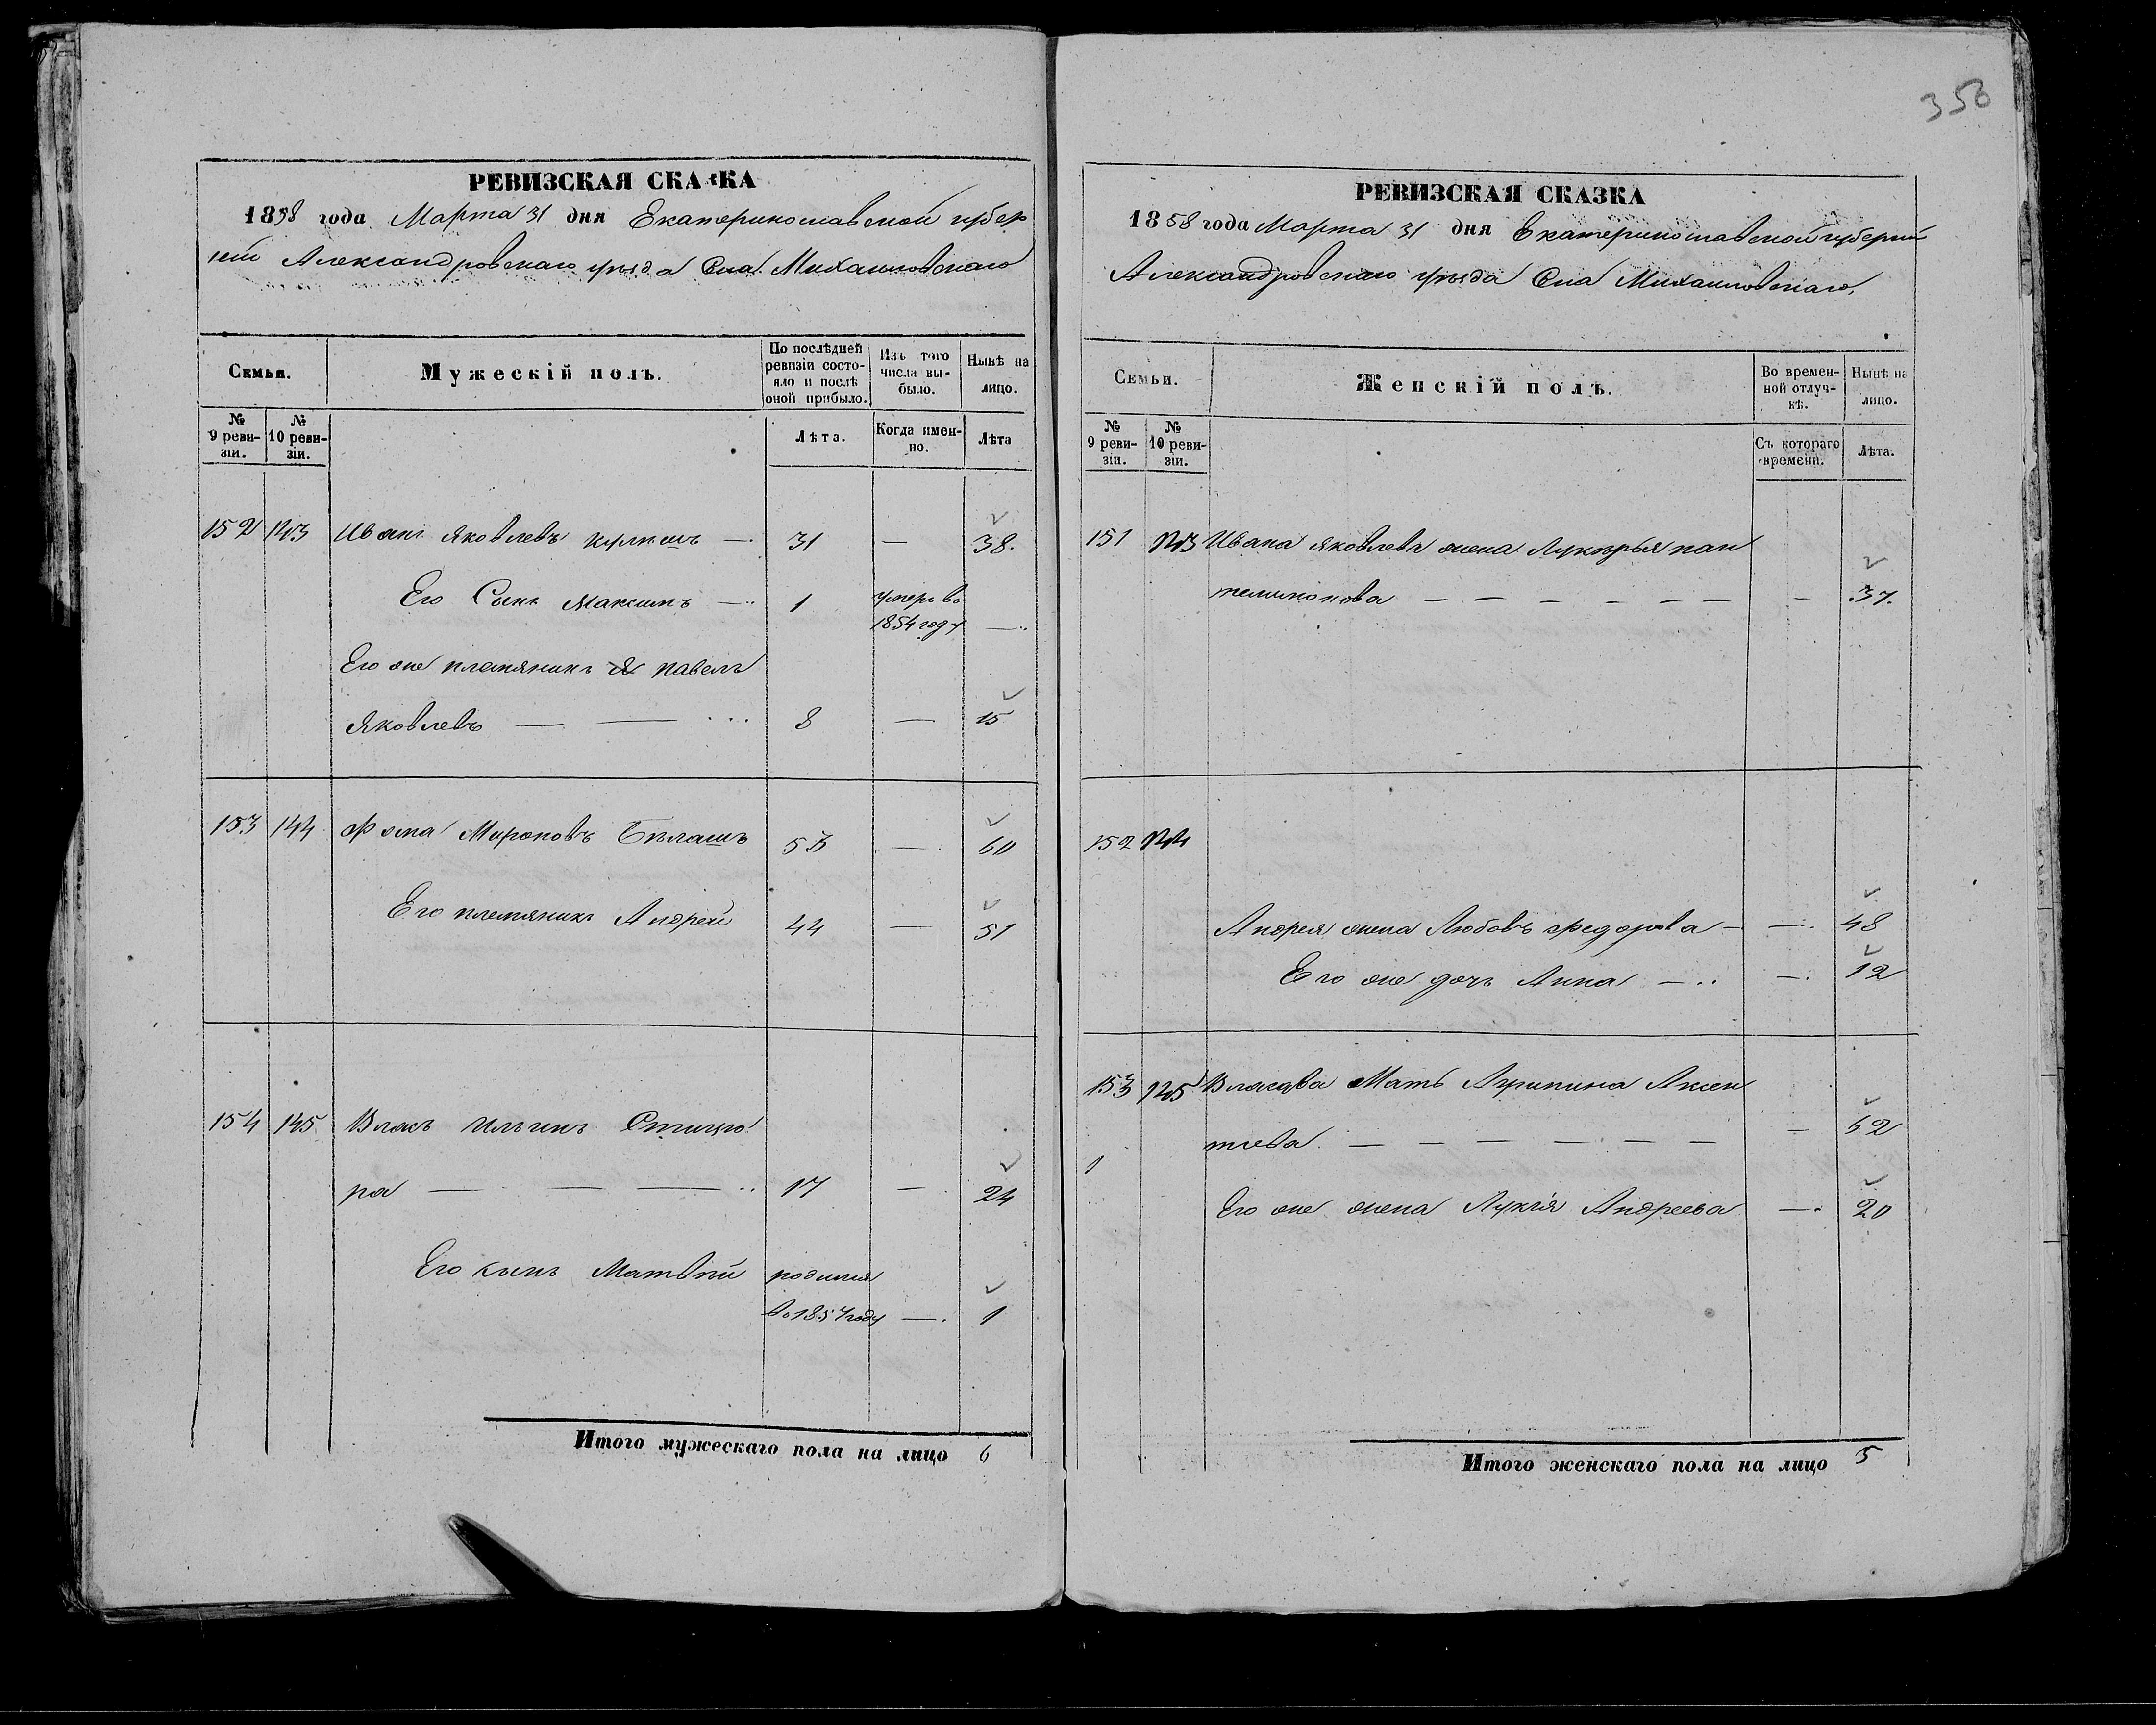 350
РЕВИЗСКАЯ СКАЗКА
1858 года Марта 31 дня Екатеринославской губер
ніи Александровскаго уѣзда Села Михайловскаго
Семьи.
Мужескій полъ.
По послѣдней ревизіи состояло и послѣ оной прибыло.
Изъ того числа выбыло.
Нынѣ на лицо.
№ 9 ревизіи.
№ 10 ревизіи.
Лѣта.
Когда именно.
Лѣта
152 143 Иванъ Яковлевъ Кулешъ — 31 — 38.
Его Сынъ Максимъ — 1 умеръ въ
1854 году —
Его же племяникъ Павелъ
Яковлевъ — — 8 — 15
153 144 Фома Мироновъ Бѣлашъ 53 — 60
Его племяникъ Андрей 44 — 51
154 145 Власъ Ильинъ
ра — — — 17 — 24
Его сынъ Матвѣй родился
въ 1857 году — 1
Итого мужескаго пола на лицо 6
РЕВИЗСКАЯ СКАЗКА
1858 года Марта 31 дня Екатеринославской губерніи
Александровскаго уѣзда Села Михайловскаго.
Семьи.
Женскій полъ.
Во временной отлучкѣ.
Нынѣ на лицо.
№ 9 ревизіи.
№ 10 ревизіи.
Съ котораго времени.
Лѣта.
151 143 Ивана Яковлева жена Лукѣрья пан
телимонова — — — — — — — 37.
152 144
Андрея жена Любовь Федорова — — 48
Его же дочь Анна — — 12
153 145 Власова Мать Агрипина Аксен
тьева — — — — — — — 62
1
Его же жена Лукія Андреева — 20
Итого женскаго пола на лицо 5